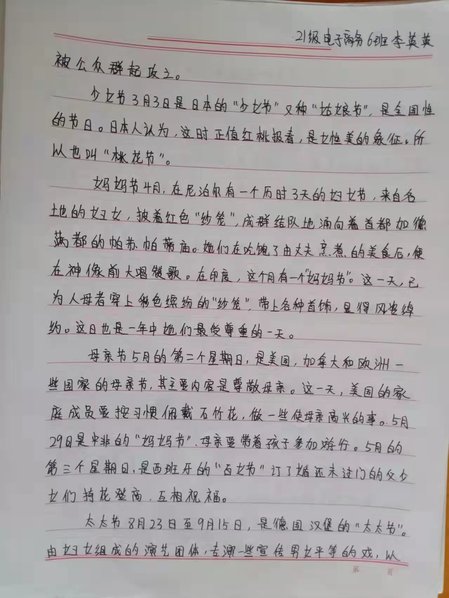 21级电子商务6班 李英英
被公众群起攻之。
少女节 3月3日是日本的“少女节”又称“姑娘节”，是全国性
的节日。日本人认为，这时正值红桃报春，是女性美的象征，所
以也叫“桃花节”。
妈妈节4月，在尼泊尔有一个历时3天的妇女节，来自各
地的妇女，披着红色“纱笼”，成群结队地涌向着首都加德
满都的帕苏帕蒂庙。她们在吃饱了由丈夫烹煮的美食后，便
在神像前大唱赞歌。在印度，这个月有一个“妈妈节”。这一天，已
为人母者穿上艳色缤纷的“纱笼”，带上各种首饰，显得风姿绰
约。这日也是一年中她们最受尊重的一天。
母亲节5月的第二个星期日，是美国，加拿大和欧洲一
些国家的母亲节，其主要内容是尊敬母亲。这一天，美国的家
庭成员要按习惯佩戴石竹花，做一些使母亲高兴的事。5月
29日是中非的“妈妈节”，母亲要带着孩子参加游行。5月的
第三个星期日，是西班牙的“百女节”订了婚还未过门的父少
女们持花登高，互相祝福。
太太节 8月23日至9月15日，是德国汉堡的“太太节”。
由妇女组成的演艺团体，专演一些宣传男女平等的戏，以
第 页